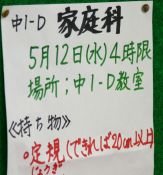 中1-D 家庭科
5月12日(水)4時限
場所；中1-D教室
≪持ち物≫
○定規(できれば20cm以上)
じょうぎ